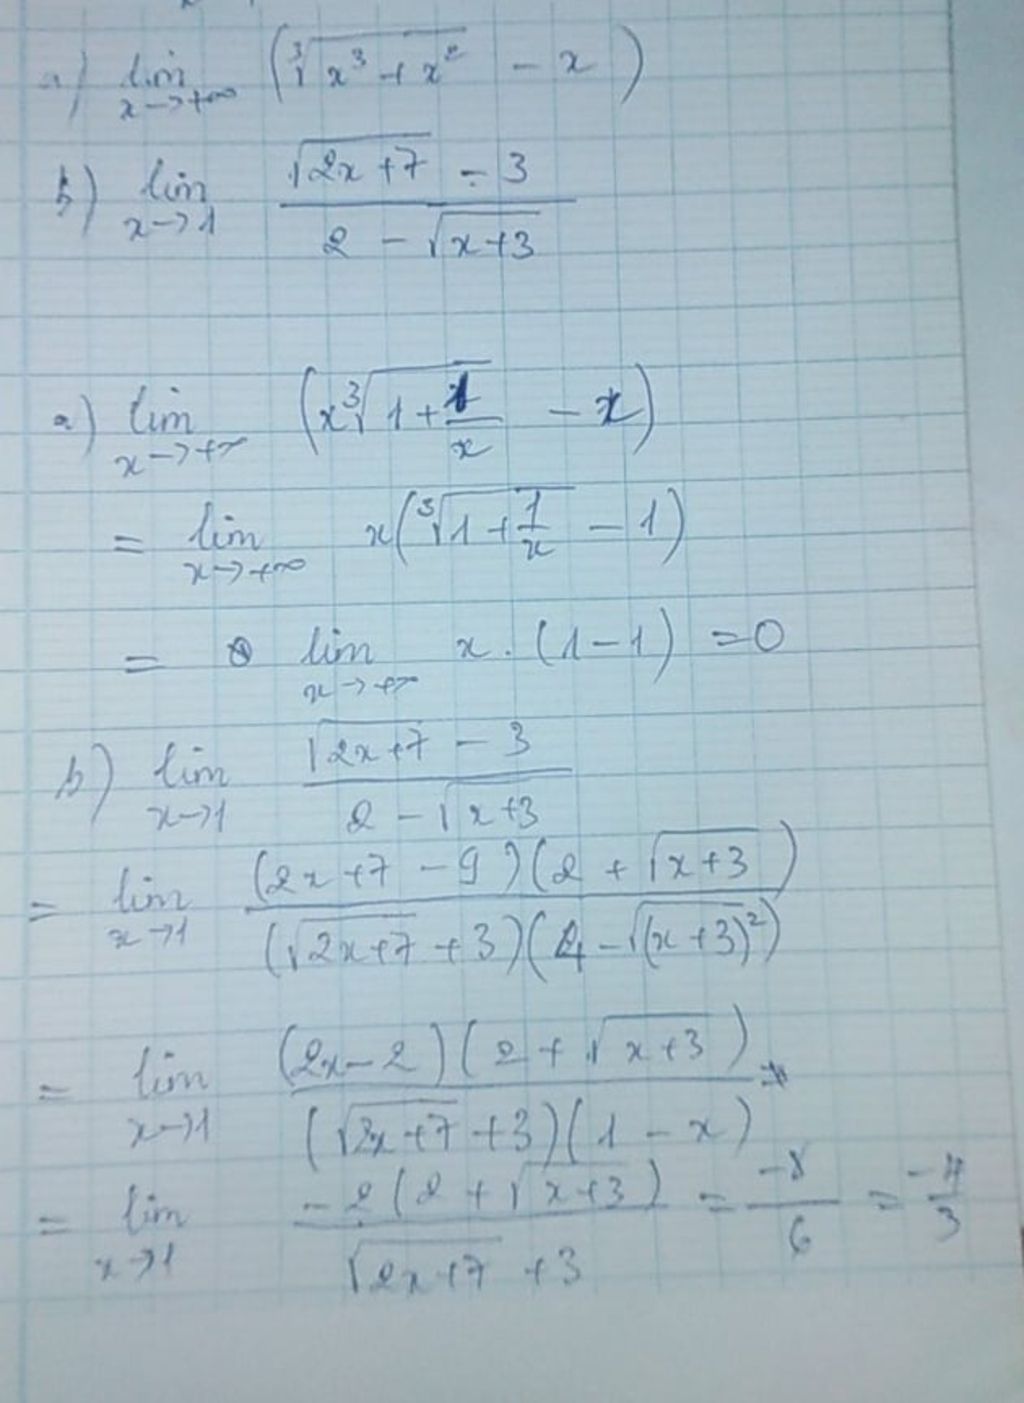 a) lim x→+∞ (∛(x³ + x²) - x)
b) lim x→1 (√(2x+7) - 3) / (2 - √(x+3))
a) lim x→+∞ (x∛(1 + 1/x) - x)
= lim x→+∞ x(∛(1 + 1/x) - 1)
= lim x→+∞ x . (1 - 1) = 0
b) lim x→1 (√(2x+7) - 3) / (2 - √(x+3))
= lim x→1 (2x+7 - 9)(2 + √(x+3)) / (√(2x+7) + 3)(4 - √((x+3)²))
= lim x→1 (2x - 2)(2 + √(x+3)) / (√(2x+7) + 3)(1 - x) =
= lim x→1 -2(2 + √(x+3)) / (√(2x+7) + 3) = -8/6 = -4/3